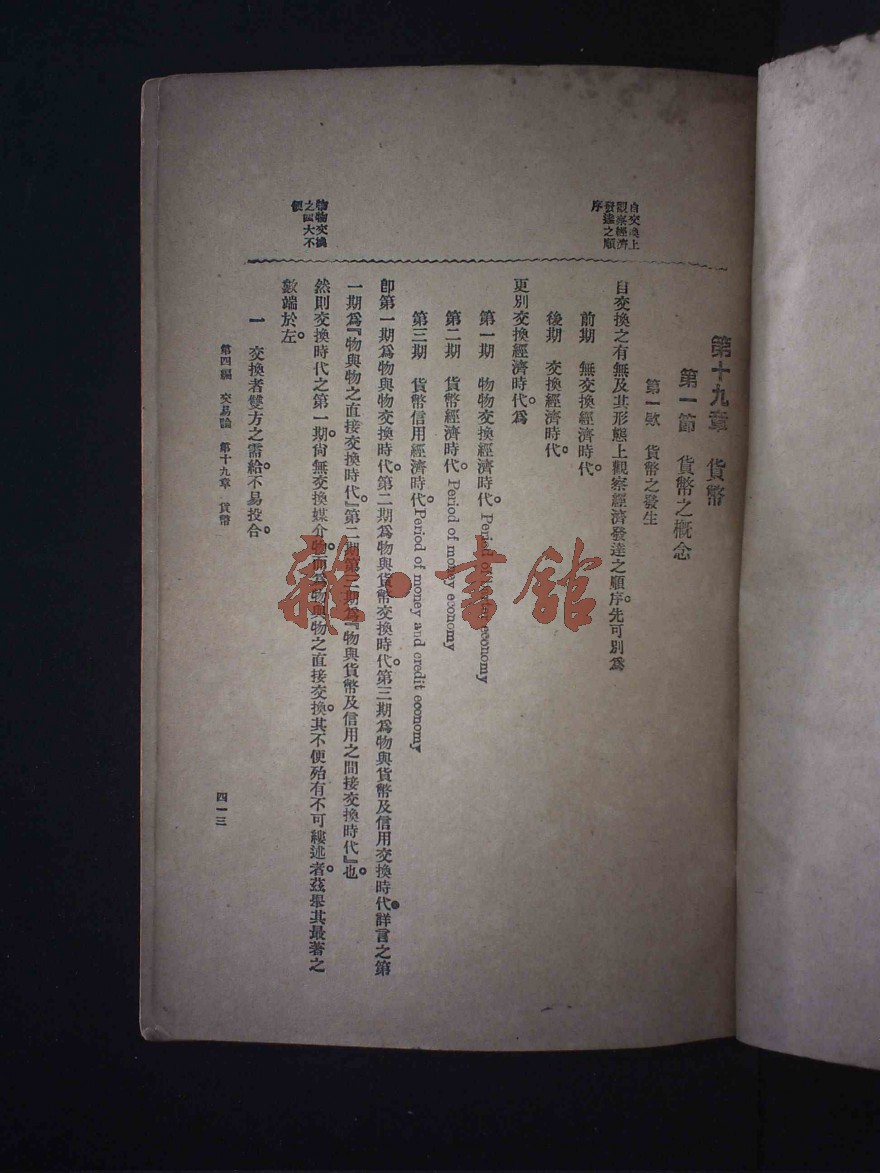 第十九章　貨幣
第一節　貨幣之概念
第一欵　貨幣之發生
自交換上
觀察經濟
發達之順
序
自交換之有無及其形態上觀察經濟發達之順序。先可別爲
前期　無交換經濟時代。
後期　交換經濟時代。
更別交換經濟時代。爲
第一期　物物交換經濟時代。Period of economy
第二期　貨幣經濟時代。Period of money economy
第三期　貨幣信用經濟時代。Period of money and credit economy
卽第一期爲物與物交換時代。第二期爲物與貨幣交換時代。第三期爲物與貨幣及信用交換時代。詳言之第
一期爲『物與物之直接交換時代。』第二期第三期爲『物與貨幣及信用之間接交換時代』也。
物物交換
之大不
便
然則交換時代之第一期。尙無交換媒介物。而爲物與物之直接交換。其不便殆有不可縷述者。茲舉其最著之
數端於左。
一　交換者雙方之需給。不易投合。
第四編　交易論　第十九章　貨幣
四一三
雜·書館